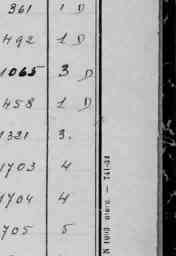 361 1 D
492 1 D
1065 3 D
458 1 D
1321 3.
1703 4
1704 4
1705 5